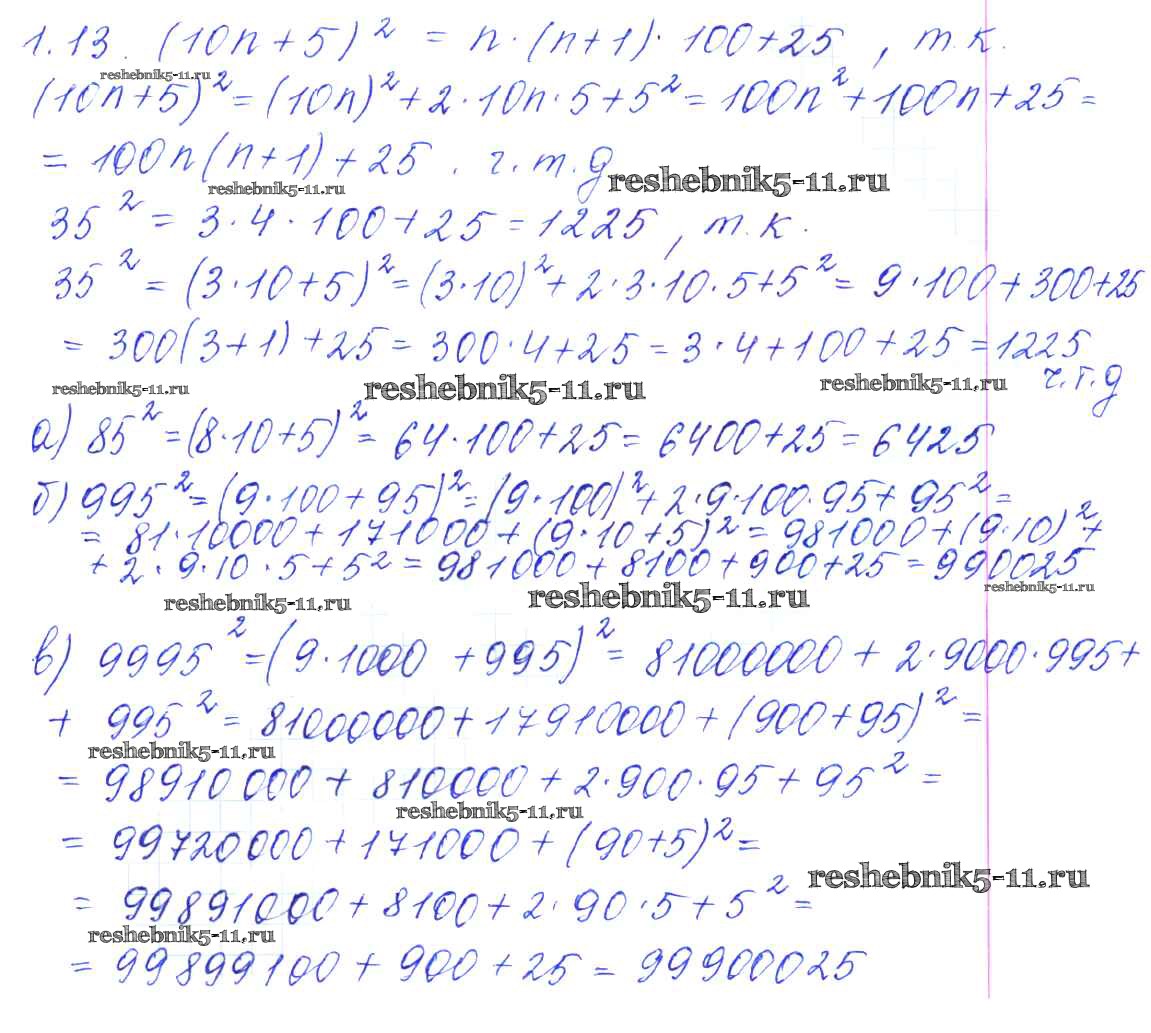 1.13. (10n+5)² = n·(n+1)·100+25, т.к.
reshebnik5-11.ru
(10n+5)² = (10n)² + 2·10n·5+5² = 100n² + 100n + 25 =
= 100n(n+1) + 25. ч.т.д
reshebnik5-11.ru reshebnik5-11.ru
35² = 3·4·100+25 = 1225, т.к.
35² = (3·10+5)² = (3·10)² + 2·3·10·5+5² = 9·100+300+25
= 300(3+1)+25 = 300·4+25 = 3·4+100+25 = 1225
ч.т.д
reshebnik5-11.ru reshebnik5-11.ru reshebnik5-11.ru
а) 85² = (8·10+5)² = 64·100+25 = 6400+25 = 6425
б) 995² = (9·100+95)² = (9·100)² + 2·9·100·95 + 95² =
= 81·10000 + 171000 + (9·10+5)² = 981000 + (9·10)² +
+ 2·9·10·5+5² = 981000 + 8100 + 900+25 = 990025
reshebnik5-11.ru reshebnik5-11.ru reshebnik5-11.ru
в) 9995² = (9·1000 + 995)² = 81000000 + 2·9000·995+
+ 995² = 81000000 + 17910000 + (900+95)² =
reshebnik5-11.ru
= 98910000 + 810000 + 2·900·95 + 95² =
reshebnik5-11.ru
= 99720000 + 171000 + (90+5)² =
reshebnik5-11.ru
= 99891000 + 8100 + 2·90·5 + 5² =
reshebnik5-11.ru
= 99899100 + 900 + 25 = 99900025